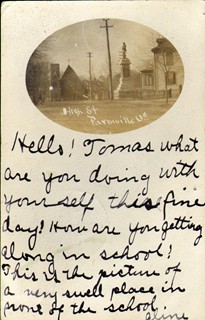 High St
Farmville Va
Hello! Tomas what
are you doing with
your self this fine
day? How are you getting
along in school?
This is the picture of
a very swell place in
none of the school.
aline